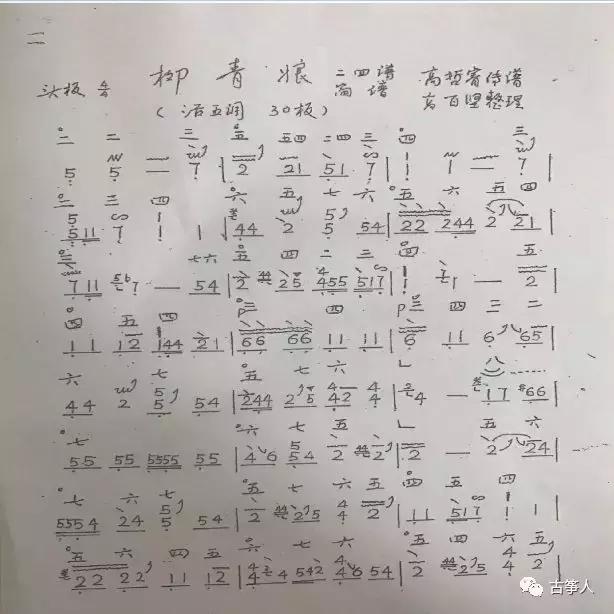 二
头板 4/4 柳青娘 二四谱 简谱 高哲睿传谱
(活五调 30板) 高百坚整理
二 二 三 五 五四 二四 三 四 三
5 5 — 7 | 2 21 51 7 | 1 1 — 7 |
二 三 四 六 五 七 六 五 六 五 四
511 7 1 1 | 44 2 5 54 | 22 244 2 21 |
三 七六 五 四 二 三 四 五
711 7 — 54 | 2 25 455 517 | 1 1 — 2 |
四 五 四 三 四 三 四 三 二
11 12 144 21 | 66 66 11 11 | 6 11 6 65 |
六 七 五 七 六 八
44 2 5 54 | 244 25 42 4 | 4 — 17 66 |
七 六 七 五 五 六
55 55 5555 55 | 46 54 2 2 | 2 — 2 24 |
七 六 七 五 七 六 五 四 五 四
5554 24 5 54 | 2 25 4 2 | 11 517 1 1 |
五 六 四 五 六 七 七 六 五 四 六 五
22 22 11 12 | 4 4 542 46 54 | 2 25 4 2 |
古筝人